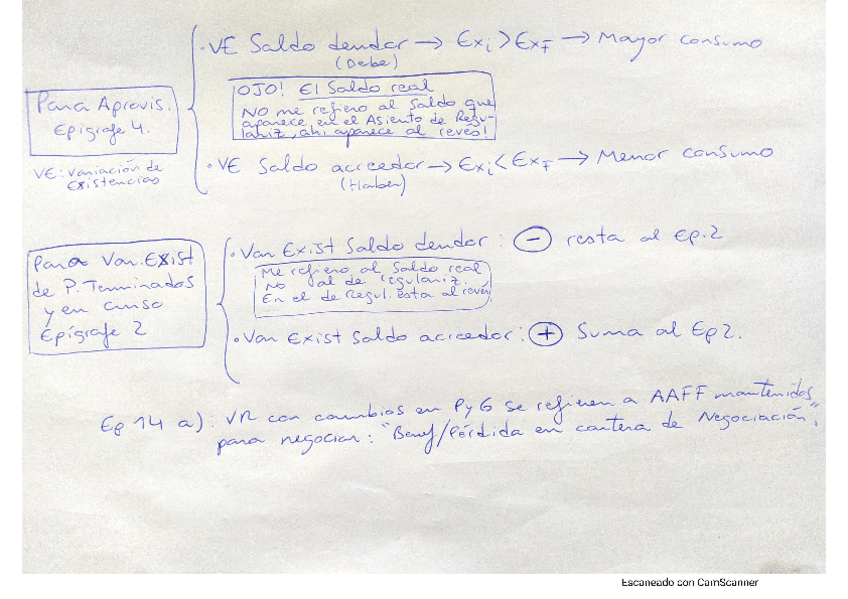 · VE Saldo deudor → Exi > ExF → Mayor consumo
(Debe)
Para Aprovis.
Epigrafe 4.
OJO! El Saldo real
NO me refiero al Saldo que
aparece en el Asiento de Regu-
lariz, ahi aparece al revés!
VE: Variación de
Existencias
· VE Saldo acreedor → Exi < ExF → Menor consumo
(Haber)
Para Var. EXist
de P. Terminados
y en curso
Epígrafe 2
· Var Exist Saldo deudor: ⊖ resta al Ep. 2
Me refiero al Saldo real
no al de regulariz.
En el de Regul. esta al revés
· Var Exist Saldo acreedor: ⊕ Suma al Ep 2.
Ep 14 a): VR con cambios en PyG se refieren a AAFF mantenidos
para negociar: "Benef/Pérdida en cartera de Negociación".
Escaneado con CamScanner